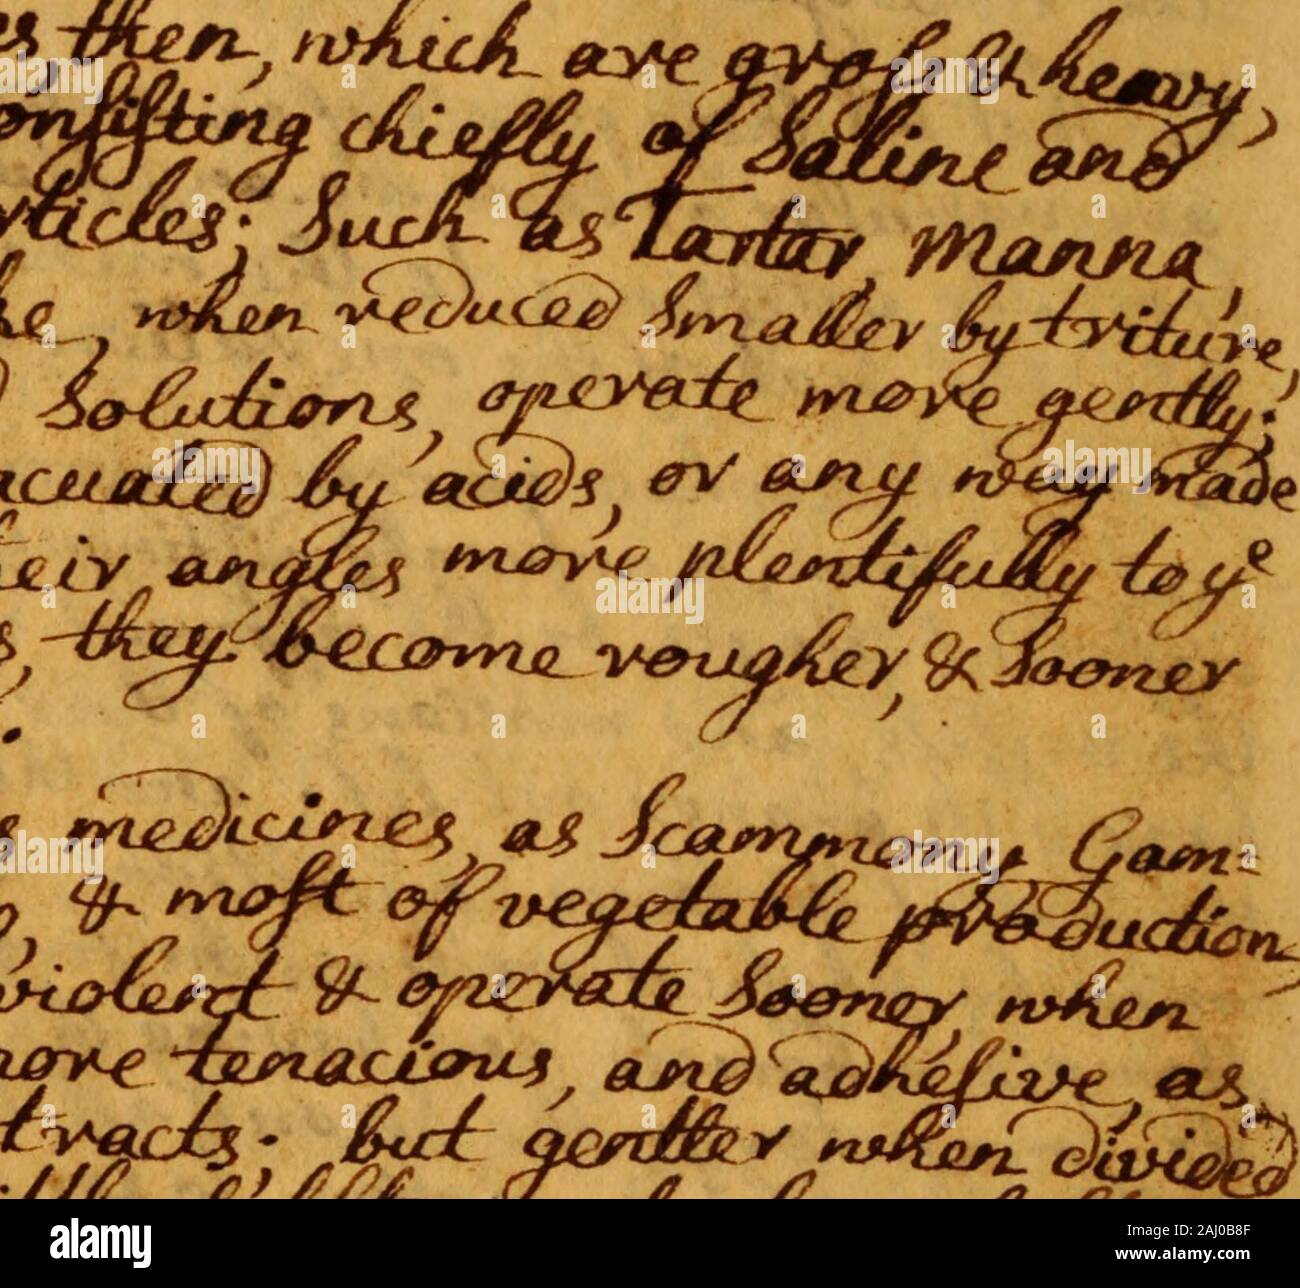 es, then, which are groſs & heavy,
onſiſting chiefly of Saline and
rticles; Such as Tartar, Manna,
ke, when reduced Smaller by triture,
d Solutions, operate more gently;
acuated by acids, or any way made
eir angles more plentifully to yᵉ
s, they become rougher, & Sooner
.
s medicines, as Scammony Gam-
, & moſt of vegetable production,
violent & operate Sooner, when
more tenacious, and adhéſive, as
tracts; but gentler when divided
alamy
Image ID: 2AJ0B8F
www.alamy.com